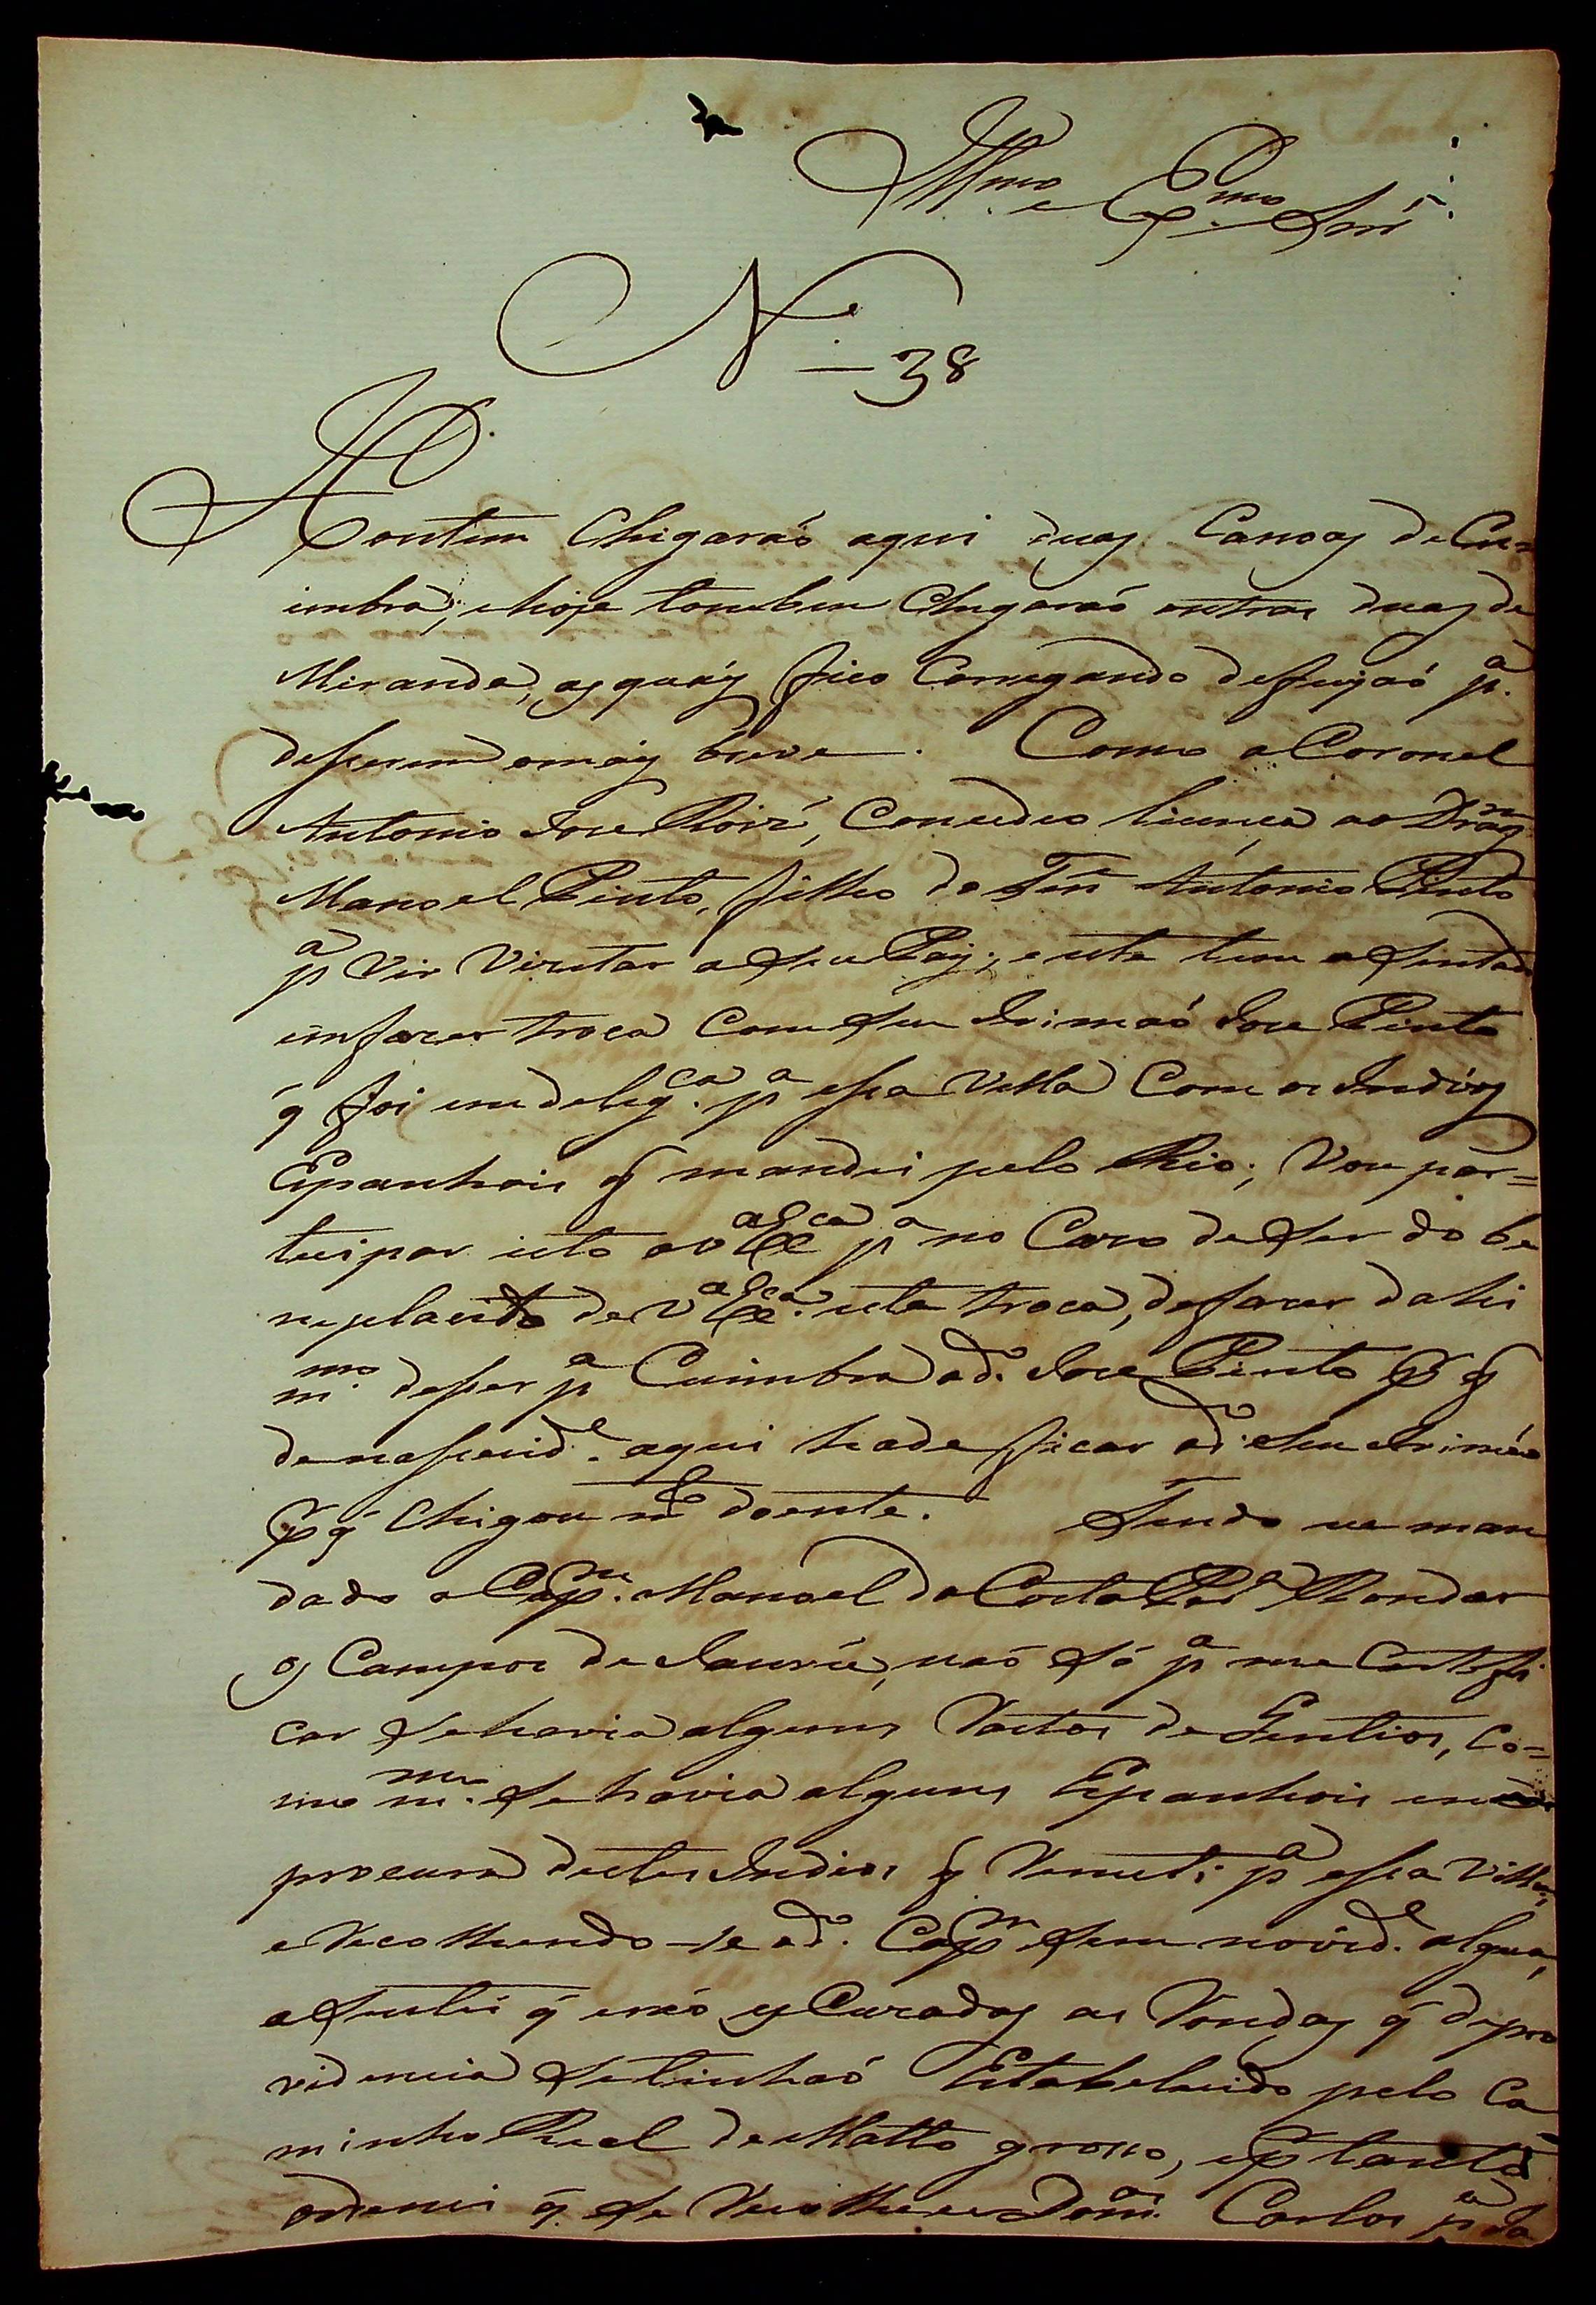 Illmo e Exmo Snr
N.º 38
Hontem Chigaraõ aqui duas Canoas de Cu=
imbra, e hoje tambem Chigaraõ outras duas de
Miranda, as quáis fico Carregando de feijaõ p.a
desserem o máis breve. Como o Coronel
Antonio Jose Roiz, Concedeo licença ao Drag.m
Manoel Pinto, filho do Ten.e Antonio Pinto
p.a Vir Vizitar a seu Pay; e este tem asentado
em fazer troca Com seu Irimaõ Jose Pinto
q̃ foi em delig.ca p.a essa Villa Com os Indios
Espanhois q̃ mandei pelo Rio; Vou par=
tecipar isto a V.a Ex.ca p.a no Cazo de ser do be
neplacito de V.a Ex.ca esta troca, de fazer dahi
m.mo desser p.a Cuimbra o d.o Jose Pinto
de nasecid.e aqui hade ficar o d.o seu Irimaõ
q̃ Chigou m.to doente. Tendo eu man
dado o Cap.m Manoel da Costa Rondar
os Campos de Jaurú, naõ só p.a me Certefi
car se havia alguns Vastos de Gentios, Co=
mo m.mo se havia alguns Espanhois em
procura destes Indios q̃ Remeti p.a essa Villa,
e Recolhendo-se o d.o Cap.m sem novid.e algua,
asentei q̃ eraõ escuzadas as Rondas q̃ de pro
videncia se tinhaõ Estabelecido pelo Ca
minho Real de Matto grosso, e p.r tanto
ordenei q̃ se Recolhese Dom.os Carlos p.a